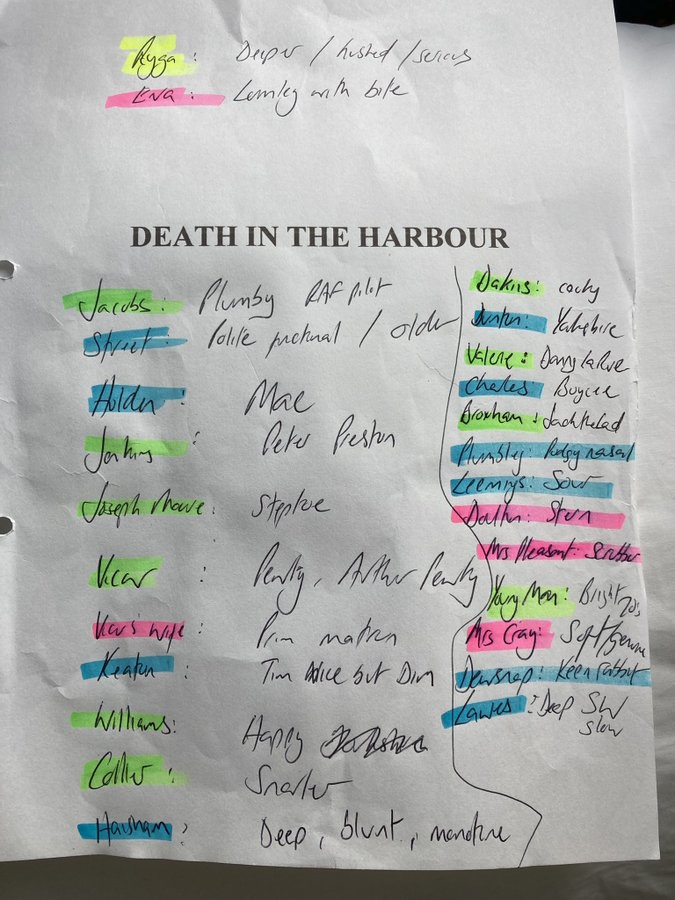 Ryga: Deeper / husted / serious
Eva: with bite
DEATH IN THE HARBOUR
Jacobs: Plumby RAF pilot
Street: Polite / older
Holden: Mac
Jenkins: Peter Preston
Joseph: Steptoe
Vicar: Penty, Arthur Penty
Vicar's wife: Prim matron
Keaton: Tim Nice but Dim
Williams: Happy
Collier: Snarler
Haisham: Deep, blunt, monotone
Dakins: cocky
Yorkshire
Valerie: Danny la Rue
Charles: Boycee
Broxham: Jack the Lad
Plumbley: Pudgy nasal
Sour
Stern
Mrs Pleasant: Scrubber
Young Man: Bright 20's
Mrs Cray: Soft/genuine
Dewsnap: Keen rabbit
Lawes: Deep SW
slow